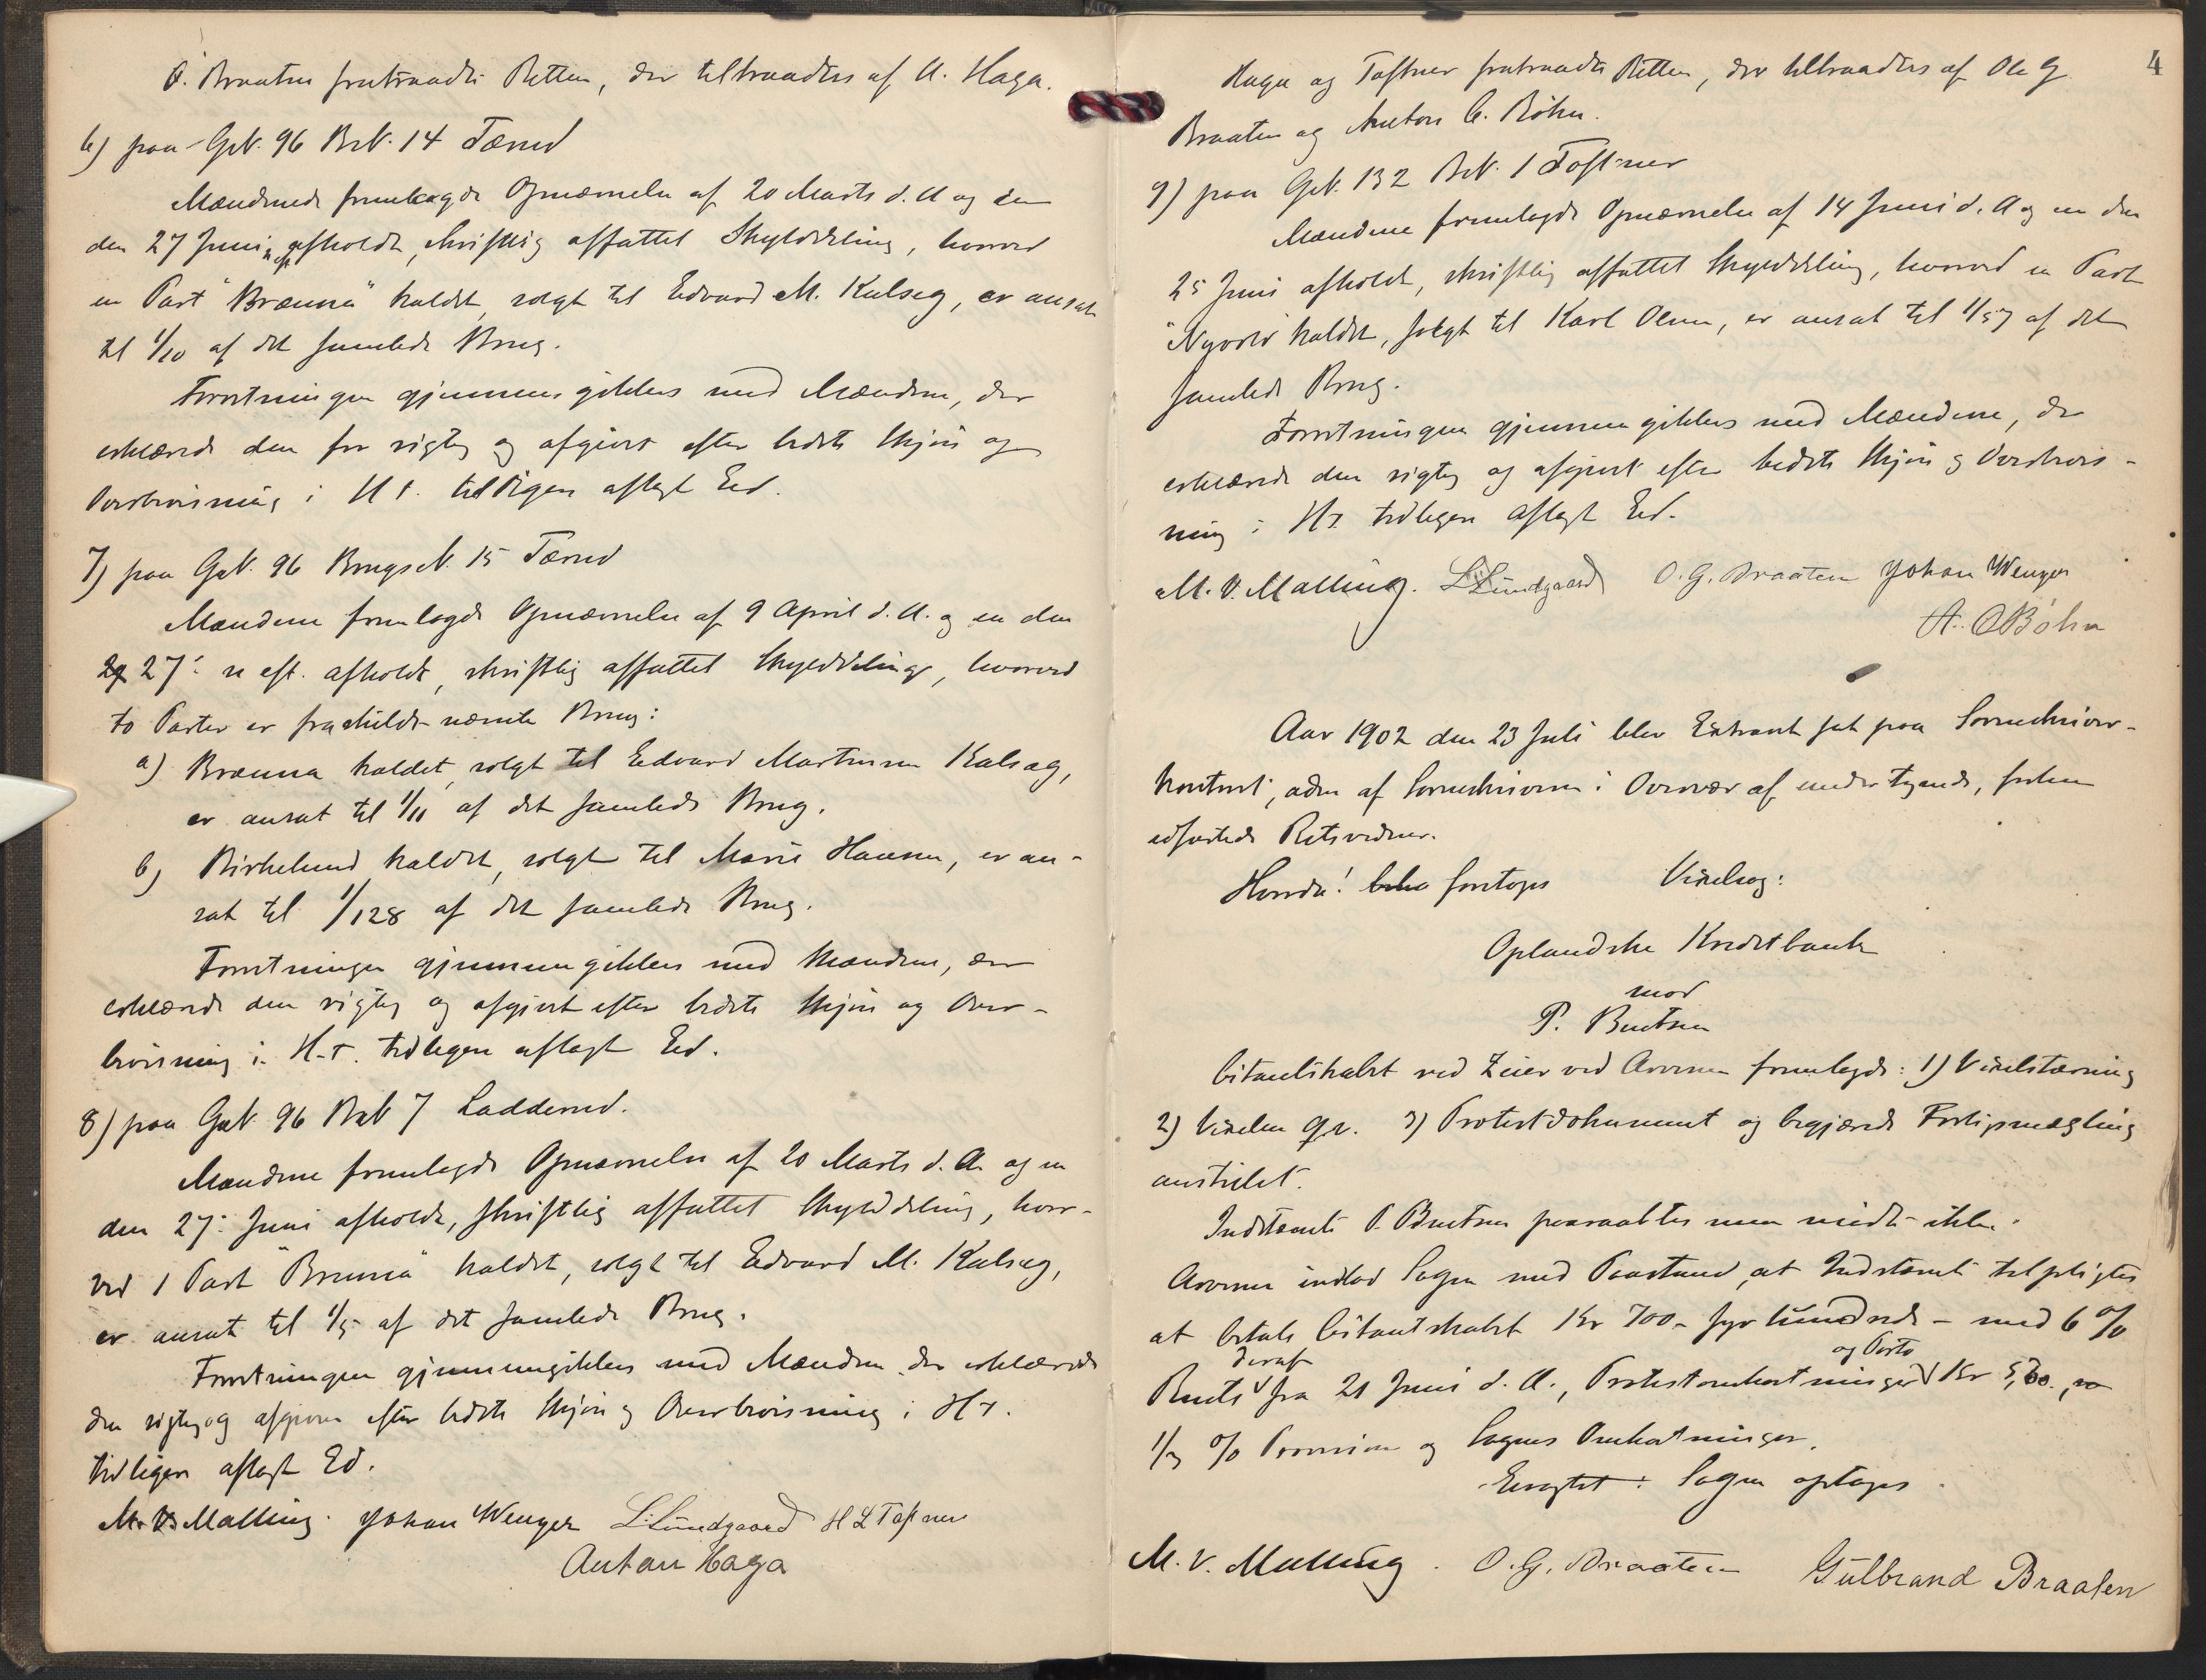 O. Braaten fratraadte Retten, der tiltraadtes af A. Haga.
6) paa Gr.N. 96 Br.N. 14 Tærud
Mændene fremlagde Opnævnelse af 20 Marts d. A og en
den 27 Juni n. eft. afholdt, skriftlig affattet Skylddeling, hvorved
en Part "Brænna" kaldet, solgt til Edvard M. Kalsæg, er ansat
til 1/10 af det samlede Brug.
Forretningen gjennemgikkes med Mændene, der
erklærede den for rigtig og afgivet efter bedste Skjøn og
Overbevisning i H. t. tidligere aflagt Ed.
7) paa G.N. 96 Brugs N. 15 Tærud
Mændene fremlagde Opnævnelse af 9 April d. A. og en den
27: n eft. afholdt, skriftlig affattet Skylddeling, hvorved
to Parter er fraskildt nævnte Brug:
a) Brænna kaldet, solgt til Edvard Martinsen Kalsæg,
er ansat til 1/11 af det samlede Brug.
b) Birkelund kaldet, solgt til Marie Hansen, er an-
sat til 1/128 af det samlede Brug.
Forretningen gjennemgikkes med Mændene, der
erklærede den rigtig og afgivet efter bedste Skjøn og Over-
bevisning i H. t. tidligere aflagt Ed.
8) paa G.N. 96 B.N. 7 Ladderud.
Mændene fremlagde Opnævnelse af 20 Marts d. A. og en
den 27: Juni afholdt, skriftlig affattet Skylddeling, hvor-
ved 1 Part "Brænna" kaldet, solgt til Edvard M. Kalsæg,
er ansat til 1/5 af det samlede Brug.
Forretningen gjennemgikkes med Mændene der erklærede
den rigtig og afgiven efter bedste Skjøn og Overbevisning i H. t.
tidligere aflagt Ed.
M. V. Malling. Johan Wenger L. Lundgaard H L Tøfner
Anton Haga
4
Haga og Toftner fratraadte Retten, der tiltraadtes af Ole G
Braaten og Anton C. Bøhn.
9) paa G.N. 132 B.N. 1 Toftner
Mændene fremlagde Opnævnelse af 14 Juni d. A og en den
25 Juni afholdt, skriftlig affattet Skylddeling, hvorved en Part
"Nyvold" kaldet, solgt til Karl Olsen, er ansat til 1/57 af det
samlede Brug.
Forretningen gjennemgikkes med Mændene, der
erklærede den rigtig og afgivet efter bedste Skjøn og Overbevis-
ning i H. t. tidligere aflagt Ed.
M. V. Malling. L. Lundgaard O. G. Braaten Johan Wenger
A. C Bøhn
Aar 1902 den 23 Juli blev Extraret sat paa Sorenskriver-
kontoret, adm af Sorenskriveren i Overvær af undertegnede, forhen
edfæstede Retsvidner.
Hvorda! foretoges Vexelsag:
Oplandske Kreditbank
mod
P. Berntsen
Citantskabet ved Zeier ved Arvesen fremlagde: 1) Vexelstævning
2) Vexelen qv. 3) Protestdokument og begjærede Forligsmægling
anstillet.
Indstævnte P. Berntsen paaraabtes men mødte ikke.
Arvesen indlod Sagen med Paastand, at Indstævnte tilpligtes
at betale Citantskabet Kr 700 - syv hundrede - med 6 %
Rente deraf fra 21 Juni d. A., Protestomkostninger og Porto Kr 5,60,
1/3 % Provision og Sagens Omkostninger.
Eragtet: Sagen optages
M. V. Malling. O. G. Braaten Gulbrand Braaten